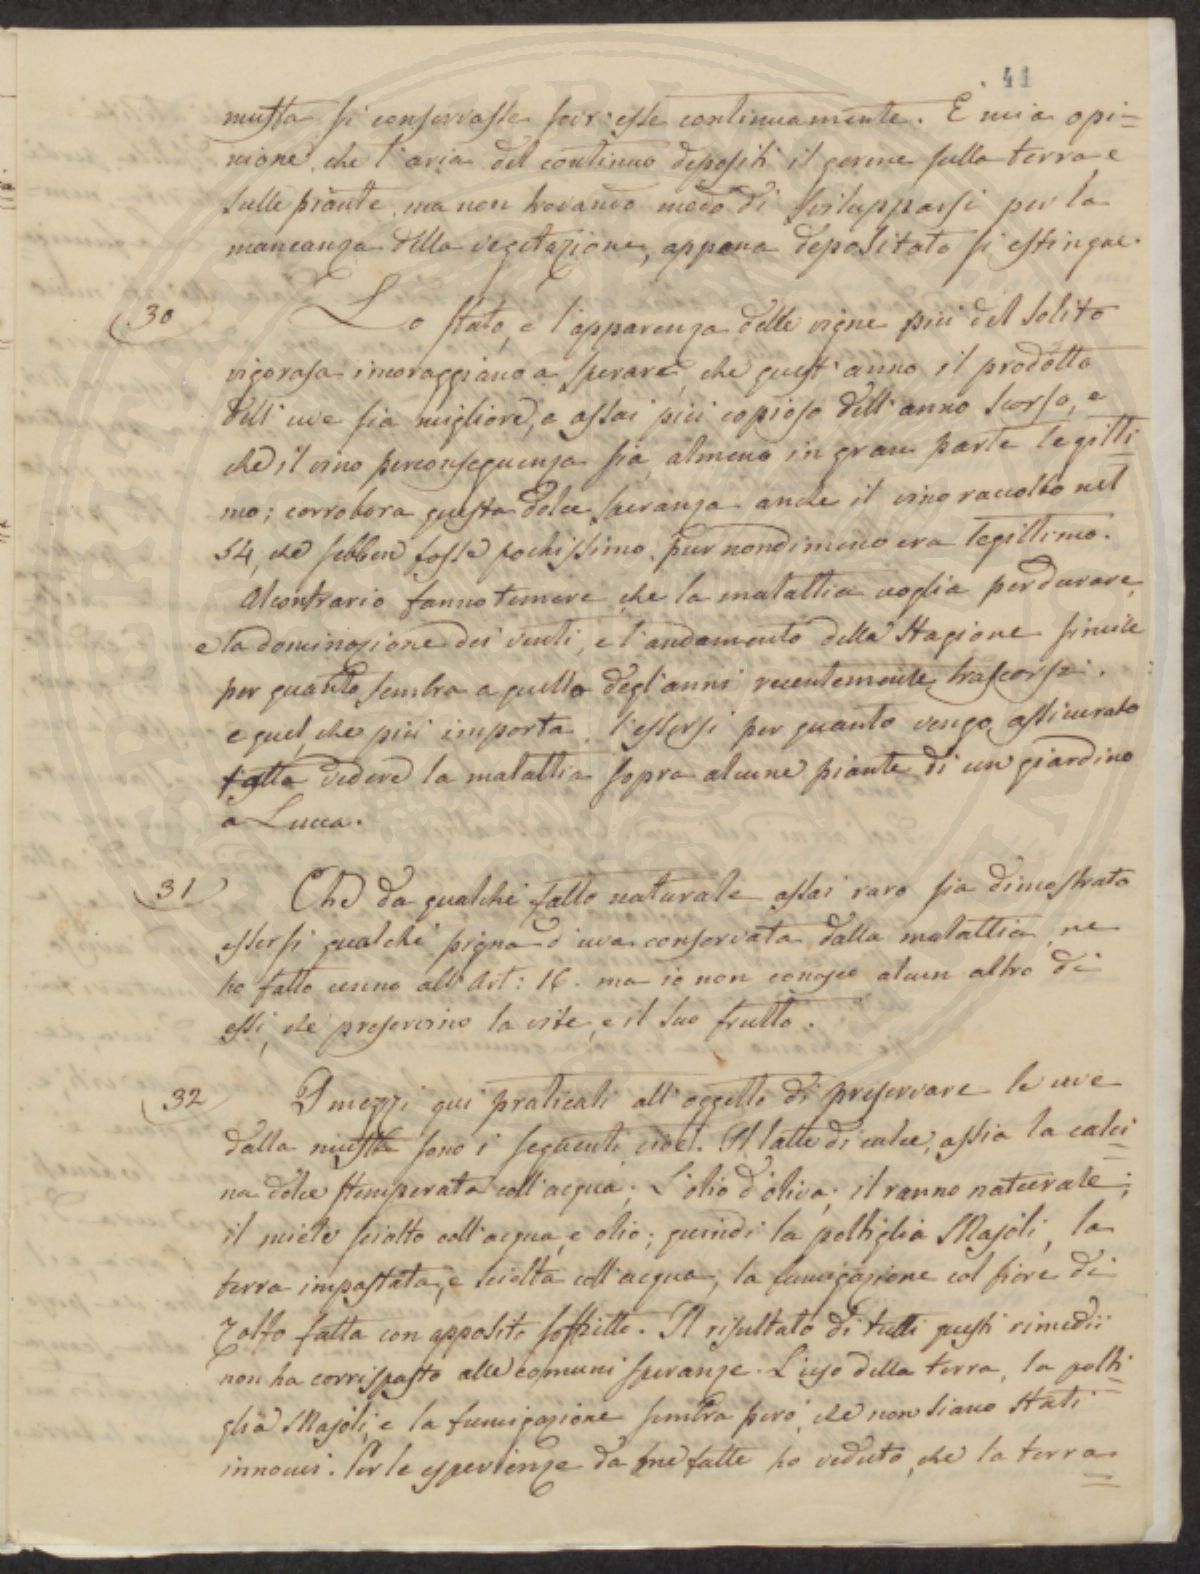 41
muffa si conservasse sovr'esse continuamente. È mia opi=
nione, che l'aria del continuo depositi il germe sulla terra e
sulle piante, ma non trovando modo di svilupparsi per la
mancanza della vegetazione, appena depositato si estingue.
30 Lo stato, e l'apparenza delle vigne più del solito
vigorosa incoraggiano a sperare, che quest'anno il prodotto
dell'uve sia migliore, e assai più copioso dell'anno scorso, e
che il vino perconseguenza sia almeno in gran parte legitti
mo; corrobora questa dolce speranza anche il vino raccolto nel
54, che sebben fosse pochissimo, pur nondimeno era legittimo.
Alcontrario fanno temere che la malattia voglia perdurare,
e la dominazione dei venti, e l'andamento della Stagione simile
per quanto sembra a quello degl'anni recentemente trascorsi.
e quel, che più importa, l'essersi per quanto vengo assicurato
fatta vedere la malattia sopra alcune piante di un giardino
a Lucca.
31 Che da qualche fatto naturale assai raro sia dimostrato
essersi qualche pigna d'uva conservata dalla malattia, ne
ho fatto cenno all'Art: 16. ma io non conosco alcun altro di
essi, che preservino la vite, e il suo frutto.
32 I mezzi qui praticati all'oggetto di preservare le uve
dalla muffa sono i seguenti, cioè. Il latte di calce, assia la calci
na dolce stemperata coll'acqua; L'olio d'oliva; il ranno naturale;
il miele sciolto coll'acqua, e olio; quindi la poltiglia Majoli, la
terra impastata, e sciolta coll'acqua, la fumigazione col fiore di
Zolfo fatta con apposito soffietto. Il risultato di tutti questi rimedii
non ha corrisposto alle comuni speranze. L'uso della terra, la polti
glia Majoli, e la fumigazione sembra però, che non siano stati
innocui. Per le esperienze da me fatte ho veduto, che la terra